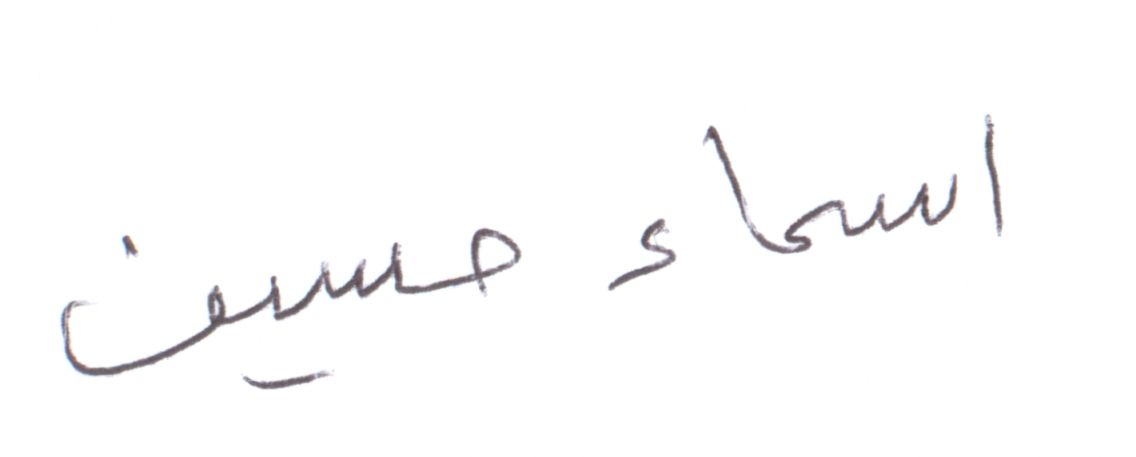 اسماء حسين